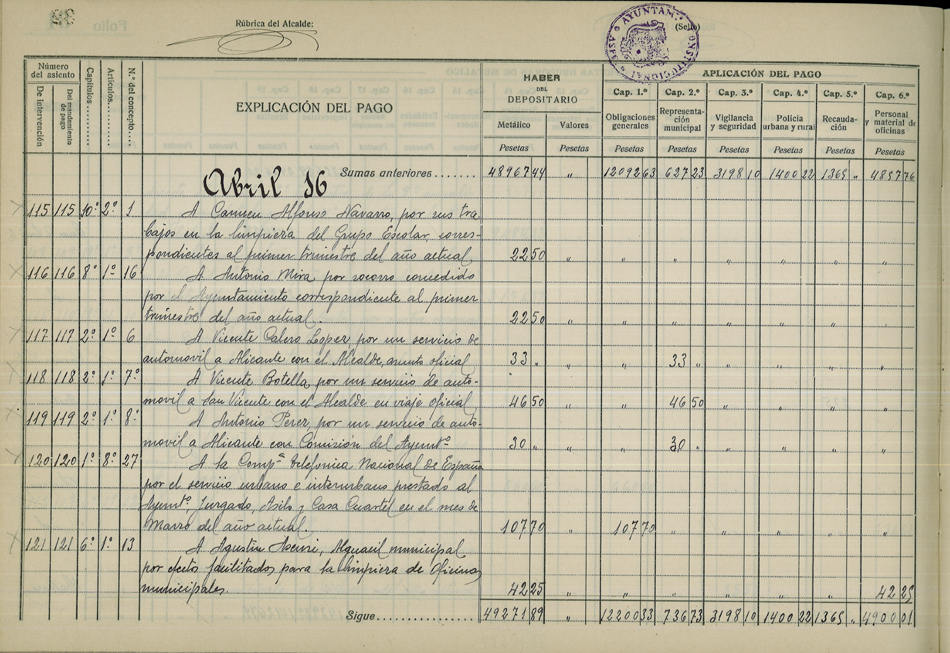 39
Folio
Rúbrica del Alcalde:
(Sello)
AYUNTAM. CONSTITUCIONAL ASPE
Número del asiento
De intervención
Del mandamiento de pago
Capítulos
Artículos
N.º del concepto
EXPLICACIÓN DEL PAGO
HABER DEL DEPOSITARIO
Metálico
Valores
Pesetas
Pesetas
APLICACIÓN DEL PAGO
Cap. 1.º Cap. 2.º Cap. 3.º Cap. 4.º Cap. 5.º Cap. 6.º
Obligaciones generales
Representación municipal
Vigilancia y seguridad
Policía urbana y rural
Recaudación
Personal y material de oficinas
Pesetas Pesetas Pesetas Pesetas Pesetas Pesetas
Sumas anteriores....... 48967 44 " 12092 63 627 23 3198 10 1400 22 1365 " 4857 76
Abril 16
115 115 10º 2º 1 A Carmen Alfonso Navarro, por sus tra
bajos en la limpiera del Grupo Escolar, corres-
pondientes al primer trimestre del año actual 22 50 " " " " " " "
116 116 8º 1º 16 A Antonio Mira por socorro concedido
por el Ayuntamiento correspondiente al primer
trimestre del año actual. 22 50 " " " " " " "
117 117 2º 1º 6 A Vicente Calero Loper por un servicio de
automovil a Alicante con el Alcalde, asunto oficial 33 " " " 33 " " " " "
118 118 2º 1º 7º A Vicente Botella, por un servicio de auto-
movil a San Vicente con el Alcalde en viaje oficial 46 50 " " 46 50 " " " "
119 119 2º 1º 8º A Antonio Perez, por un servicio de auto-
movil a Alicante con Comisión del Ayuntº 30 " " " 30 " " " " "
120 120 1º 8º 27 A la Compª telefonica Nacional de España
por el servicio urbano e interurbano prestado al
Ayuntº, Jurgado, Asilo y Casa Cuartel en el mes de
Marzo del año actual. 107 70 " 107 70 " " " " "
121 121 6º 1º 13 A Agustin Asensi, Alguacil municipal
por efectos facilitados para la limpiera de Oficinas
municipales. 42 25 " " " " " " 42 25
Sigue............... 49271 89 " 12200 33 736 73 3198 10 1400 22 1365 " 4900 01